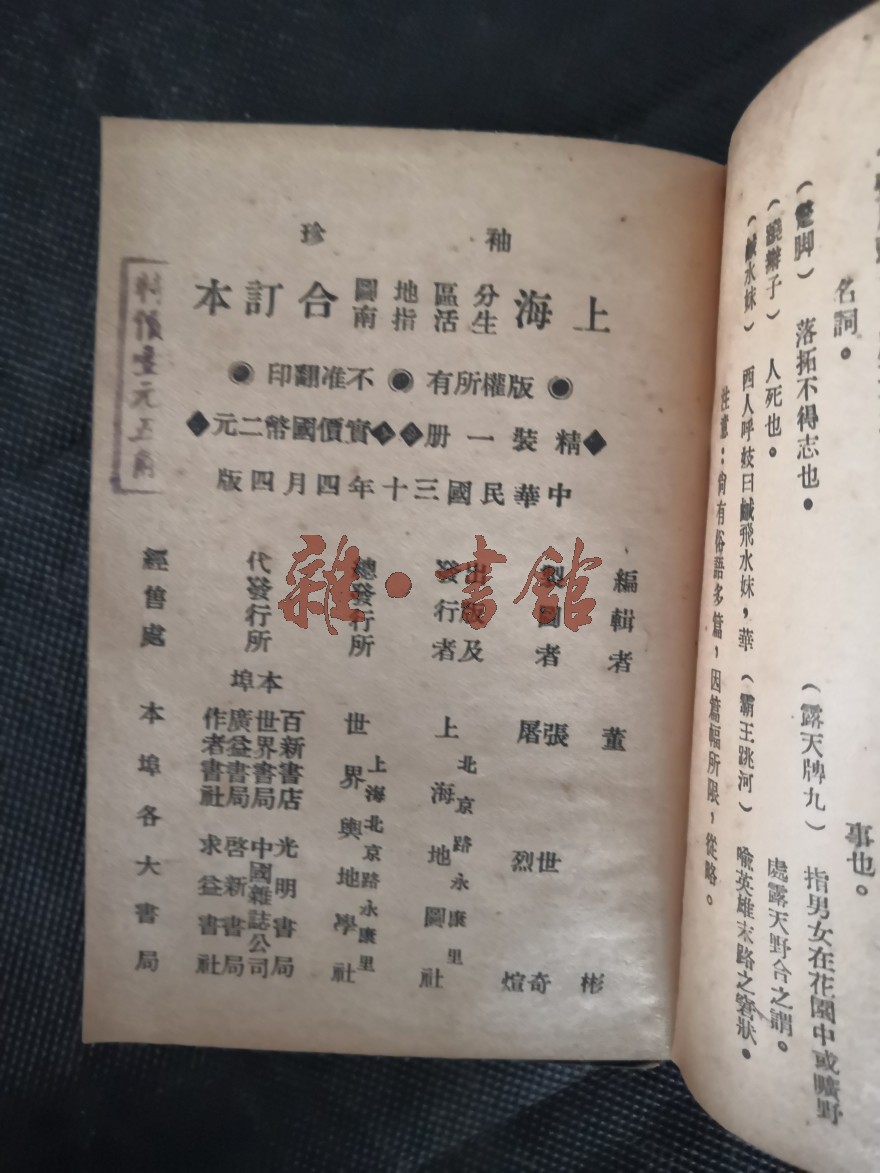 袖珍
上海分區地圖生活指南合訂本
◉版權所有◉不准翻印◉
◆精裝一册◆◆實價國幣二元◆
中華民國三十年四月四版
編輯者 董彬
製圖者 張世奇 屠烈煊
出版及發行者 上海地圖社 北京路永康里
總發行所 世界輿地學社 上海北京路永康里
代發行所 本埠
百新書店 光明書局
世界書局 中國雜誌公司
廣益書局 啓新書局
作者書社 求益書社
經售處 本埠各大書局
特價壹元五角
雜·書館
名詞。
(蹩脚) 落拓不得志也。
(蹺辮子) 人死也。
(鹹水妹) 西人呼妓曰鹹飛水妹,華
事也。
(露天牌九) 指男女在花園中或曠野
處露天野合之謂。
(霸王跳河) 喻英雄末路之窘狀。
注意:尚有俗語多篇,因篇幅所限,從略。